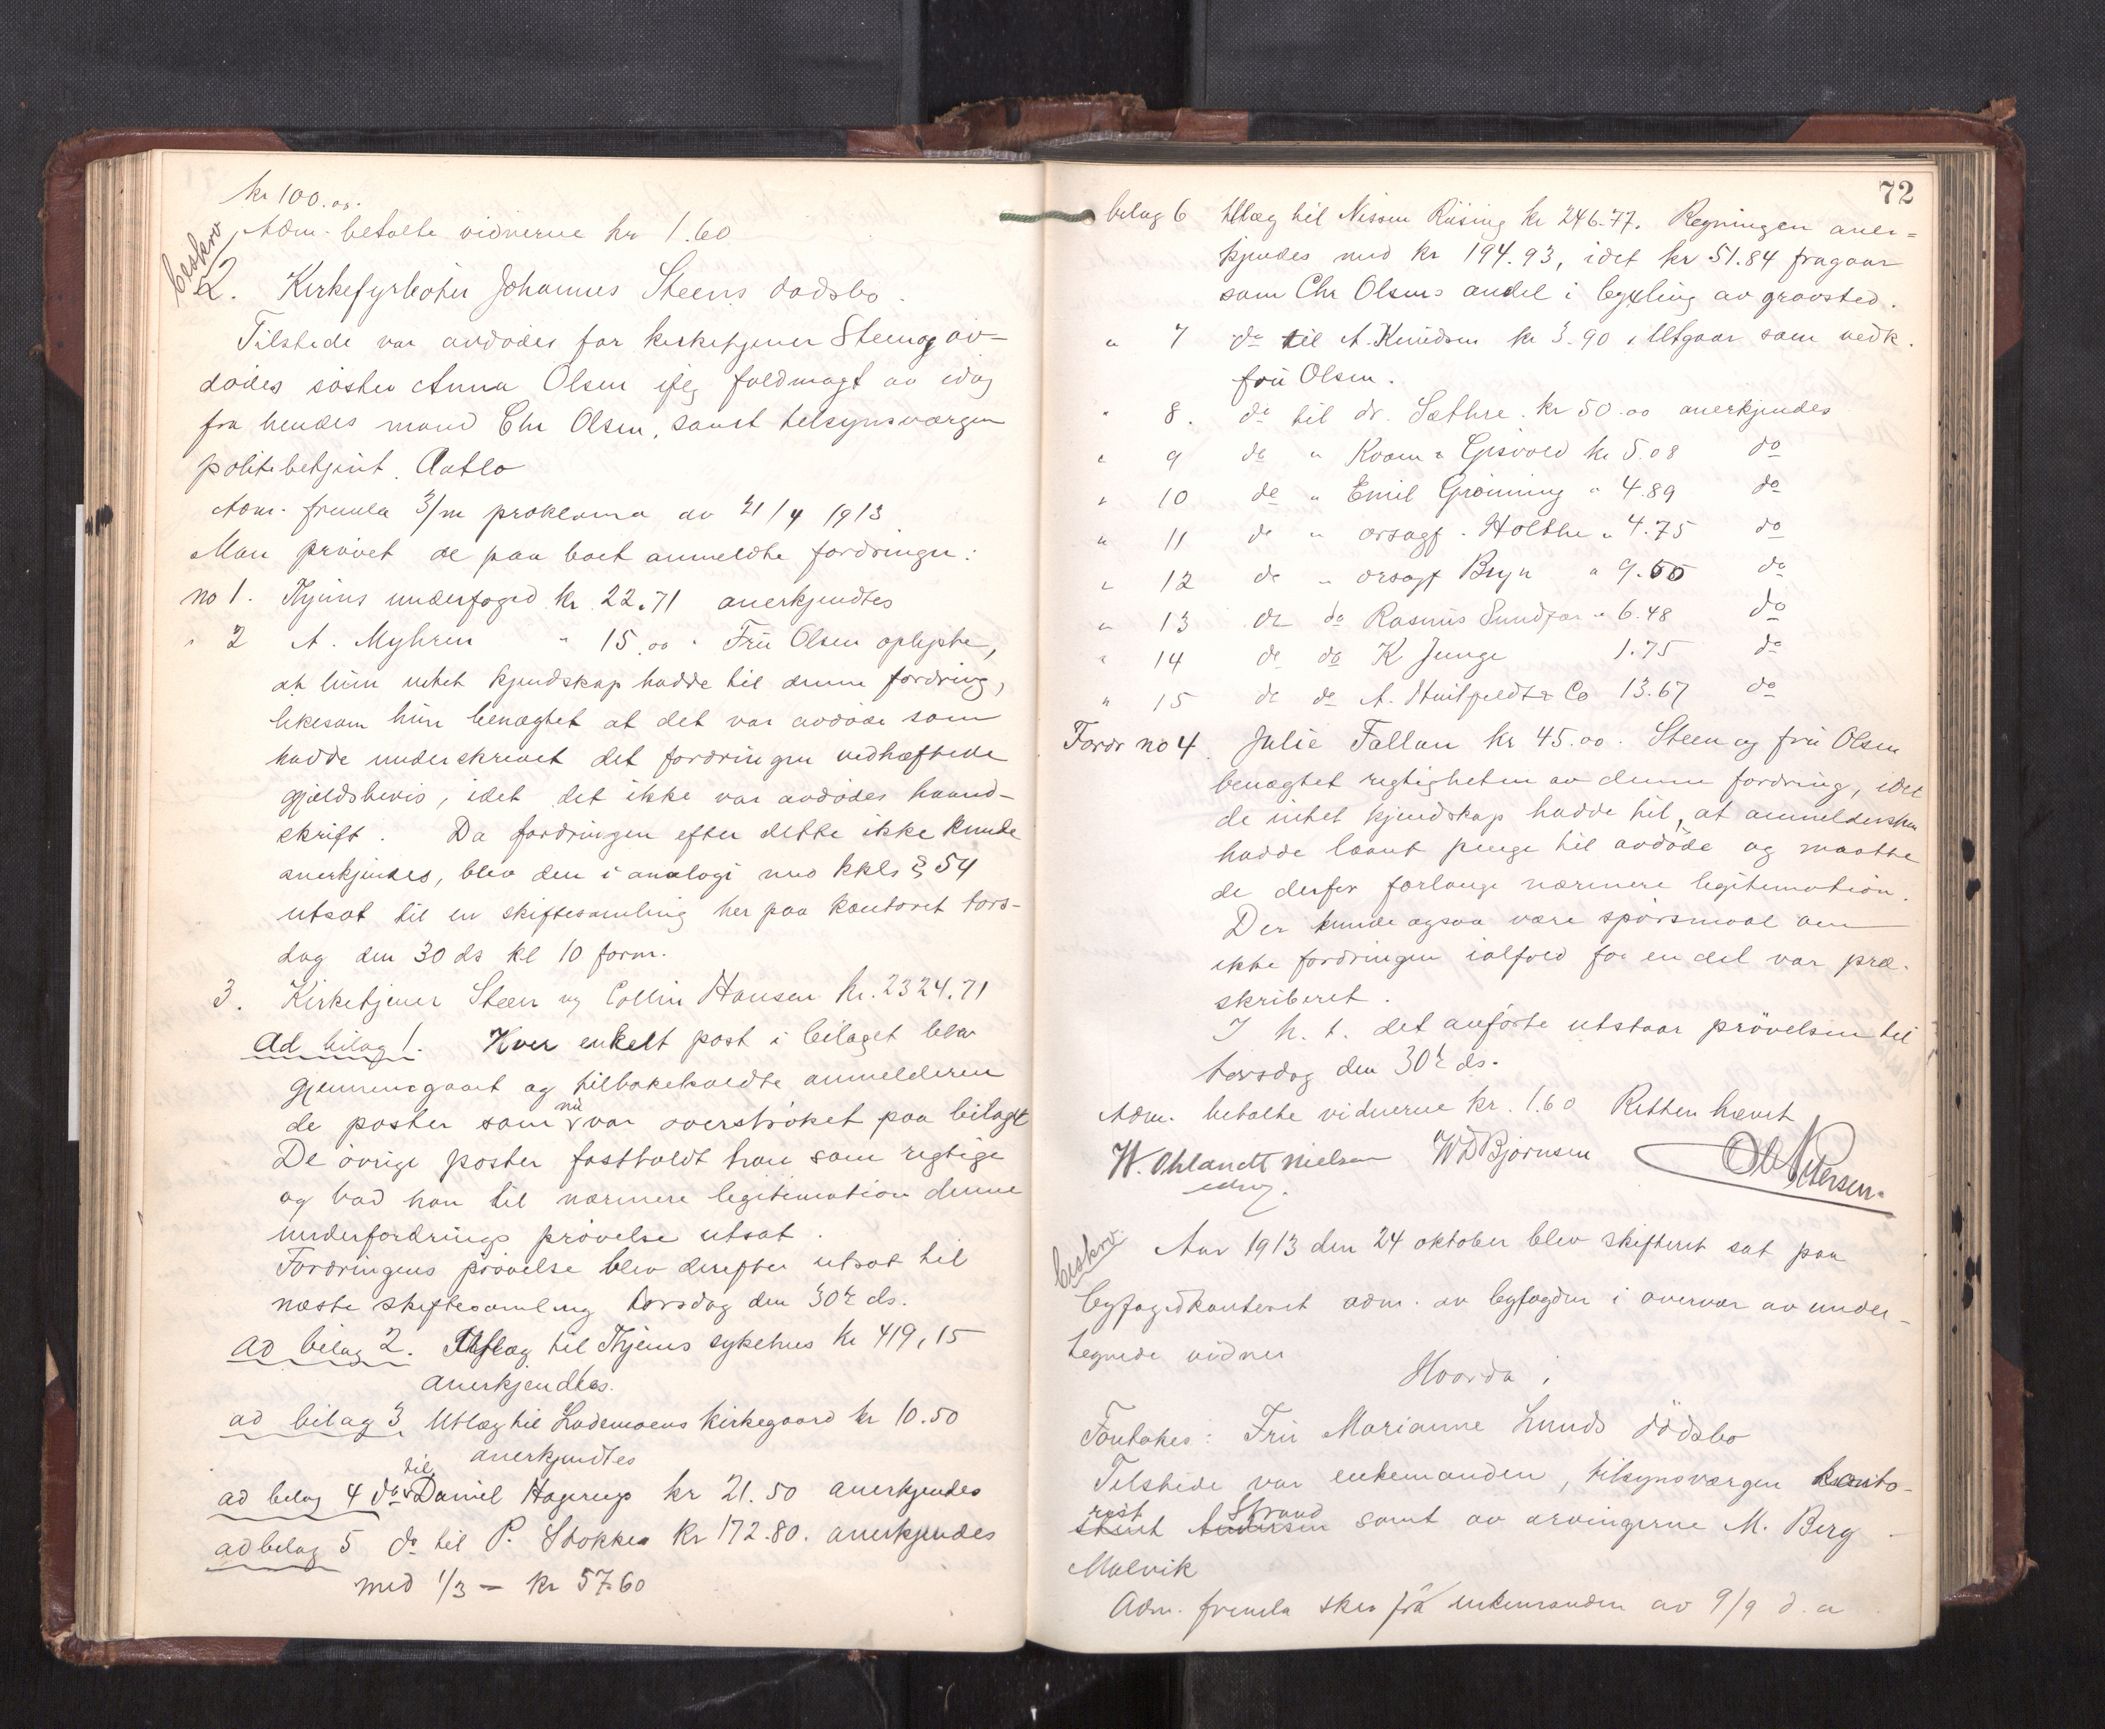 kr 100.00.
Adm. betalte vidnerne kr 1.60
beskrev
2. Kirkefyrbøter Johannes Steens dødsbo.
Tilstede var avdødes far kirketjener Steen og av-
dødes søster Anna Olsen ifølg fuldmagt av idag
fra hendes mand Chr Olsen, samt tilsynsværgen
politibetjent Aatlo
Adm. fremla 3/m proklama av 21/4 1913
Man prøvet de paa boet anmeldte fordringer:
no 1. Thjems underfoged kr. 22.71 anerkjendtes
" 2 A. Myhren " 15.00 " Fru Olsen oplyste,
at hun intet kjendskap hadde til denne fordring,
likesom hun benægtet at det var avdøde som
hadde underskrevet det fordringen vedhæftede
gjældsbevis, idet det ikke var avdødes haand-
skrift. Da fordringen efter dette ikke kunde
anerkjendes, blev den i analogi med kkls § 54
utsat til en skiftesamling her paa kontoret tors-
dag den 30 ds kl 10 form.
3. Kirketjener Steen og Collin Hansen kr. 2324.71
Ad bilag 1. Hver enkelt post i bilaget blev
gjennemgaaet og tilbakeholdte anmelderen
de poster som nu var overstrøket paa bilaget
De øvrige poster fastholdt han som rigtige
og bad han til nærmere legitimation denne
underfordrings prøvelse utsat.
Fordringens prøvelse blev derefter utsat til
næste skiftesamling torsdag den 30te ds.
ad bilag 2. Utlæg til Thjems sykehus kr 419,15
anerkjendtes.
ad bilag 3 Utlæg til Lademoens kirkegaard kr 10.50
anerkjendtes
ad bilag 4 do til Daniel Hagerup kr 21.50 anerkjendes
ad bilag 5 do til P. Stokke kr 172.80. anerkjendes
med 1/3 — kr 57.60
72
bilag 6 Utlæg til Nissen Riising kr 246.77. Regningen aner-
kjendes med kr 194.93, idet kr 51.84 fragaar
som Chr Olsens andel i bygsling av gravsted.
" 7 do til A. Knudsen kr 3.90, Utgaar som vedk.
fru Olsen.
" 8. do til dr. Sæthre. kr 50.00 anerkjendes
" 9 do " Kvam & Gisvold kr 5.08 do
" 10 do " Emil Grønning " 4.89 do
" 11 do " orsagf. Holthe " 4.75 do
" 12 do " orsagf Bryn " 9.55 do
" 13 do do Rasmus Sundfær " 6.48 do
" 14 do do K Junge 1.75 do
" 15 do do A. Huitfeldt & Co 13.67 do
Fordr no 4. Julie Fallan kr 45.00. Steen og fru Olsen
benægtet rigtigheten av denne fordring, idet
de intet kjendskap hadde til, at anmeldersken
hadde laant penge til avdøde og maatte
de derfor forlange nærmere legitimation.
Der kunde ogsaa være spørsmaal om
ikke fordringen ialfald for en del var præ-
skriberet.
I h. t. det anførte utstaar prøvelsen til
torsdag den 30te ds.
Adm. betalte vidnerne kr. 1.60 Retten hævet
W. Ohlandt Nielsen WD Bjørnsen Ole Petersen.
edsv.
beskrev.
Aar 1913 den 24 oktober blev skifteret sat paa
byfogedkontoret adm. av byfogden i overvær av under-
tegnede vidner
Hvorda:
Foretokes: Fru Marianne Lunds dødsbo
Tilstede var enkemanden, tilsynsværgen kanto-
rist Strand samt av arvingerne M. Berg
Malvik
Adm. fremla skr fra enkemanden av 9/9 d. a.